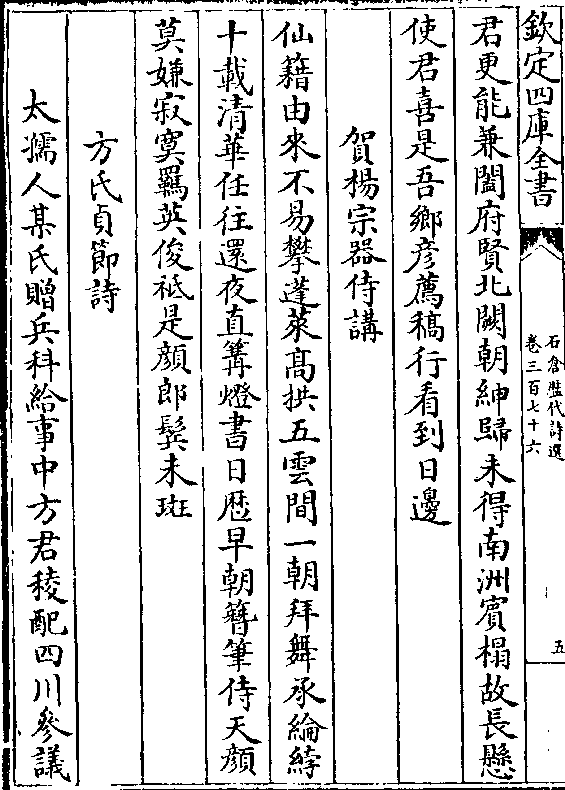 欽定四庫全書
石倉歷代詩選
卷三百七十六
五
君更能兼闔府賢北闕朝紳歸未得南洲賓榻故長懸
使君喜是吾鄉彦薦稿行看到日邊
賀楊宗器侍講
仙籍由來不易攀蓬萊高拱五雲間一朝拜舞承綸綍
十載清華任往還夜直篝燈書日歴早朝簪筆侍天顔
莫嫌寂寞羈英俊祗是顔郎鬂未斑
方氏貞節詩
太孺人某氏贈兵科給事中方君稜配四川參議